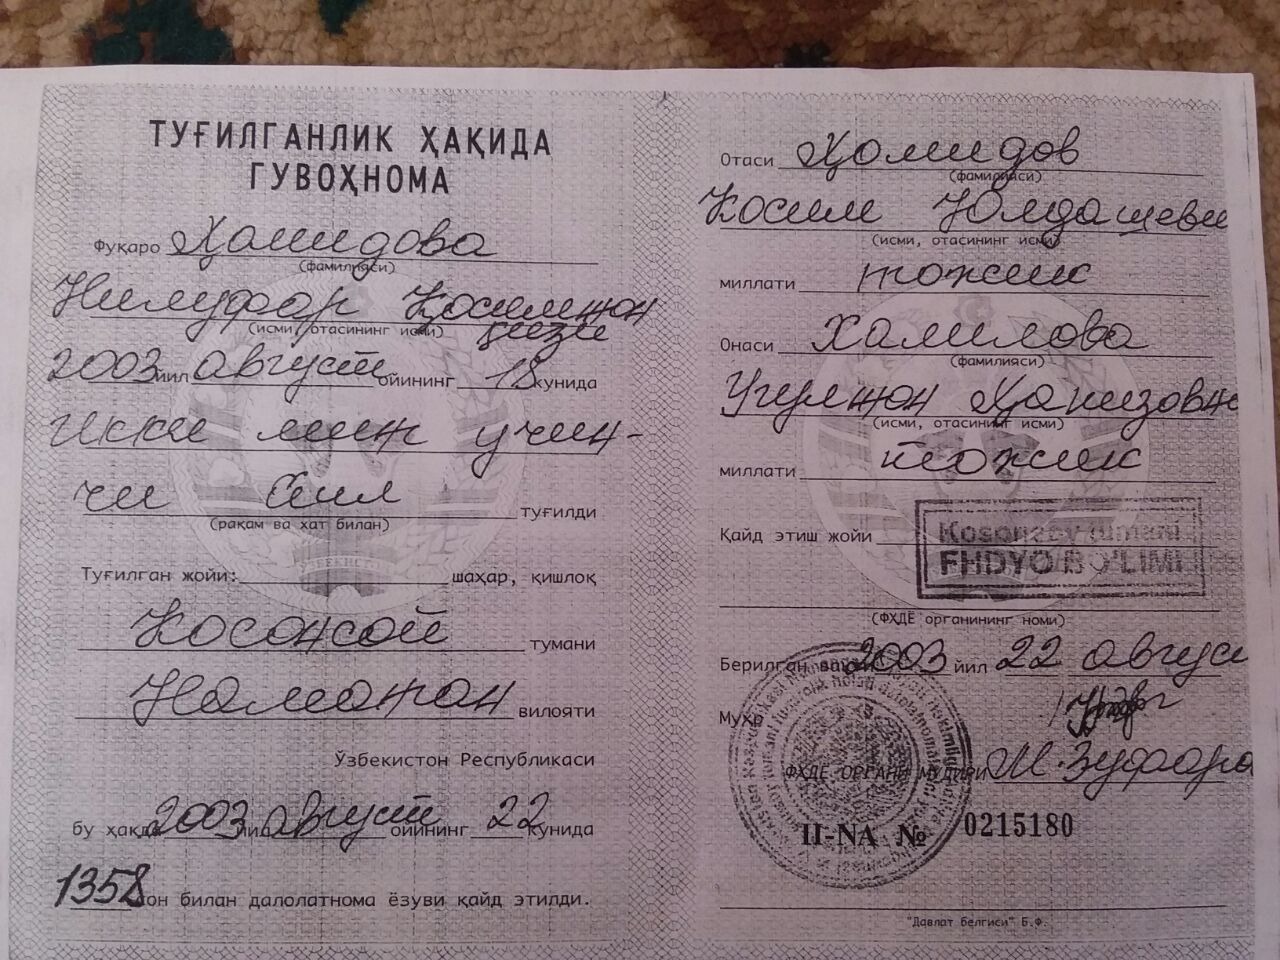 ТУҒИЛГАНЛИК ҲАҚИДА
ГУВОҲНОМА
Фуқаро Ҳамидова
(фамилияси)
Нилуфар Қосимжон
(исми, отасининг исми) қизи
2003 йил август ойининг 18 кунида
икки минг учин-
чи йил туғилди
(рақам ва хат билан)
Туғилган жойи: шаҳар, қишлоқ
Косонсой тумани
Наманган вилояти
Ўзбекистон Республикаси
бу ҳақда 2003 йил август ойининг 22 кунида
1358 сон билан далолатнома ёзуви қайд этилди.
Отаси Ҳомидов
(фамилияси)
Косим Юлдашеви
(исми, отасининг исми)
миллати тожик
Онаси Халилова
(фамилияси)
Угулжон
(исми, отасининг исми)
миллати тожик
Қайд этиш жойи Kosonsoy tumani
FHDYO BO'LIMI
(ФҲДЁ органининг номи)
Берилган вақти 2003 йил 22 авгус
Муҳр
ФҲДЁ ОРГАНИ МУДИРИ М.
II-NA № 0215180
"Давлат белгиси" Б.Ф.